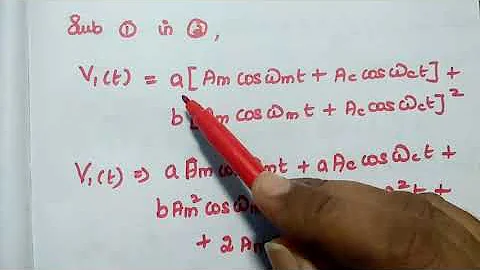 Sub ① in ②,
V₁(t) = a[Am cosωmt + Ac cosωct] +
b[Am cosωmt + Ac cosωct]²
V₁(t) ⇒ a Am cosωmt + aAc cosωct +
bAm² cosωm ²t +
+ 2Am